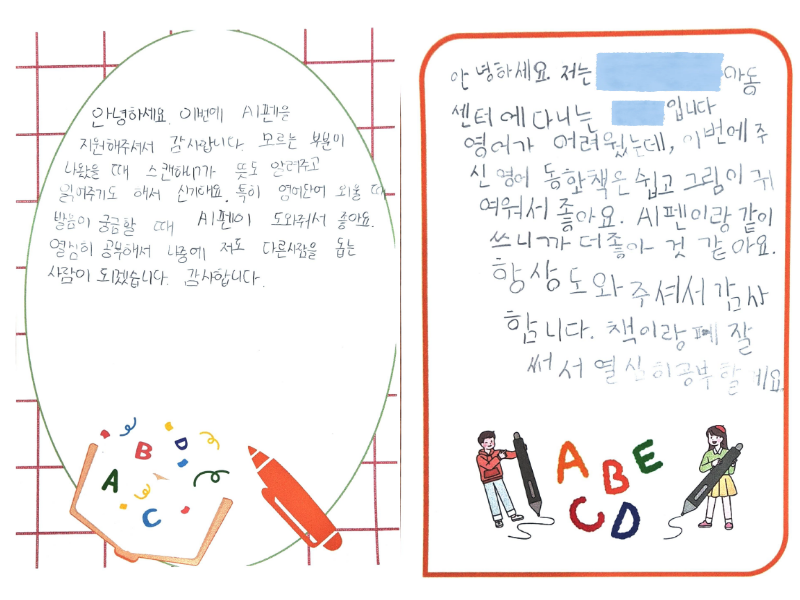 안녕하세요. 이번에 AI펜을
지원해주셔서 감사합니다. 모르는 부분이
나왔을 때 스캔하니까 뜻도 알려주고
읽어주기도 해서 신기해요. 특히 영어단어 외울 때
발음이 궁금할 때 AI펜이 도와줘서 좋아요.
열심히 공부해서 나중에 저도 다른사람을 돕는
사람이 되겠습니다. 감사합니다.
B
D
A
C
안녕하세요. 저는 아동
센터에 다니는 입니다
영어가 어려웠는데, 이번에 주
신 영어 동화책은 쉽고 그림이 귀
여워서 좋아요. AI펜이랑 같이
쓰니까 더 좋아 것 같아요.
항상 도와주셔서 감사
합니다. 책이랑 펜 잘
써서 열심히 공부할게요.
A B E
C D